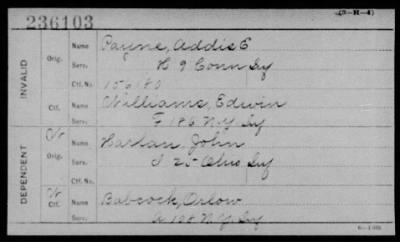 236103 (3-H-4)
INVALID
Orig. Name Payne, Addis E
Serv. H 9 Conn Inf
Ctf. No. 156180
Ctf. Name Williams, Edwin
Serv. F 186 N.Y. Inf
DEPENDENT
Orig. Name Harlan, John
Serv. I 25 Ohio Inf
Ctf. No.
Ctf. Name Babcock, Orlow
Serv. A 108 N.Y. Inf